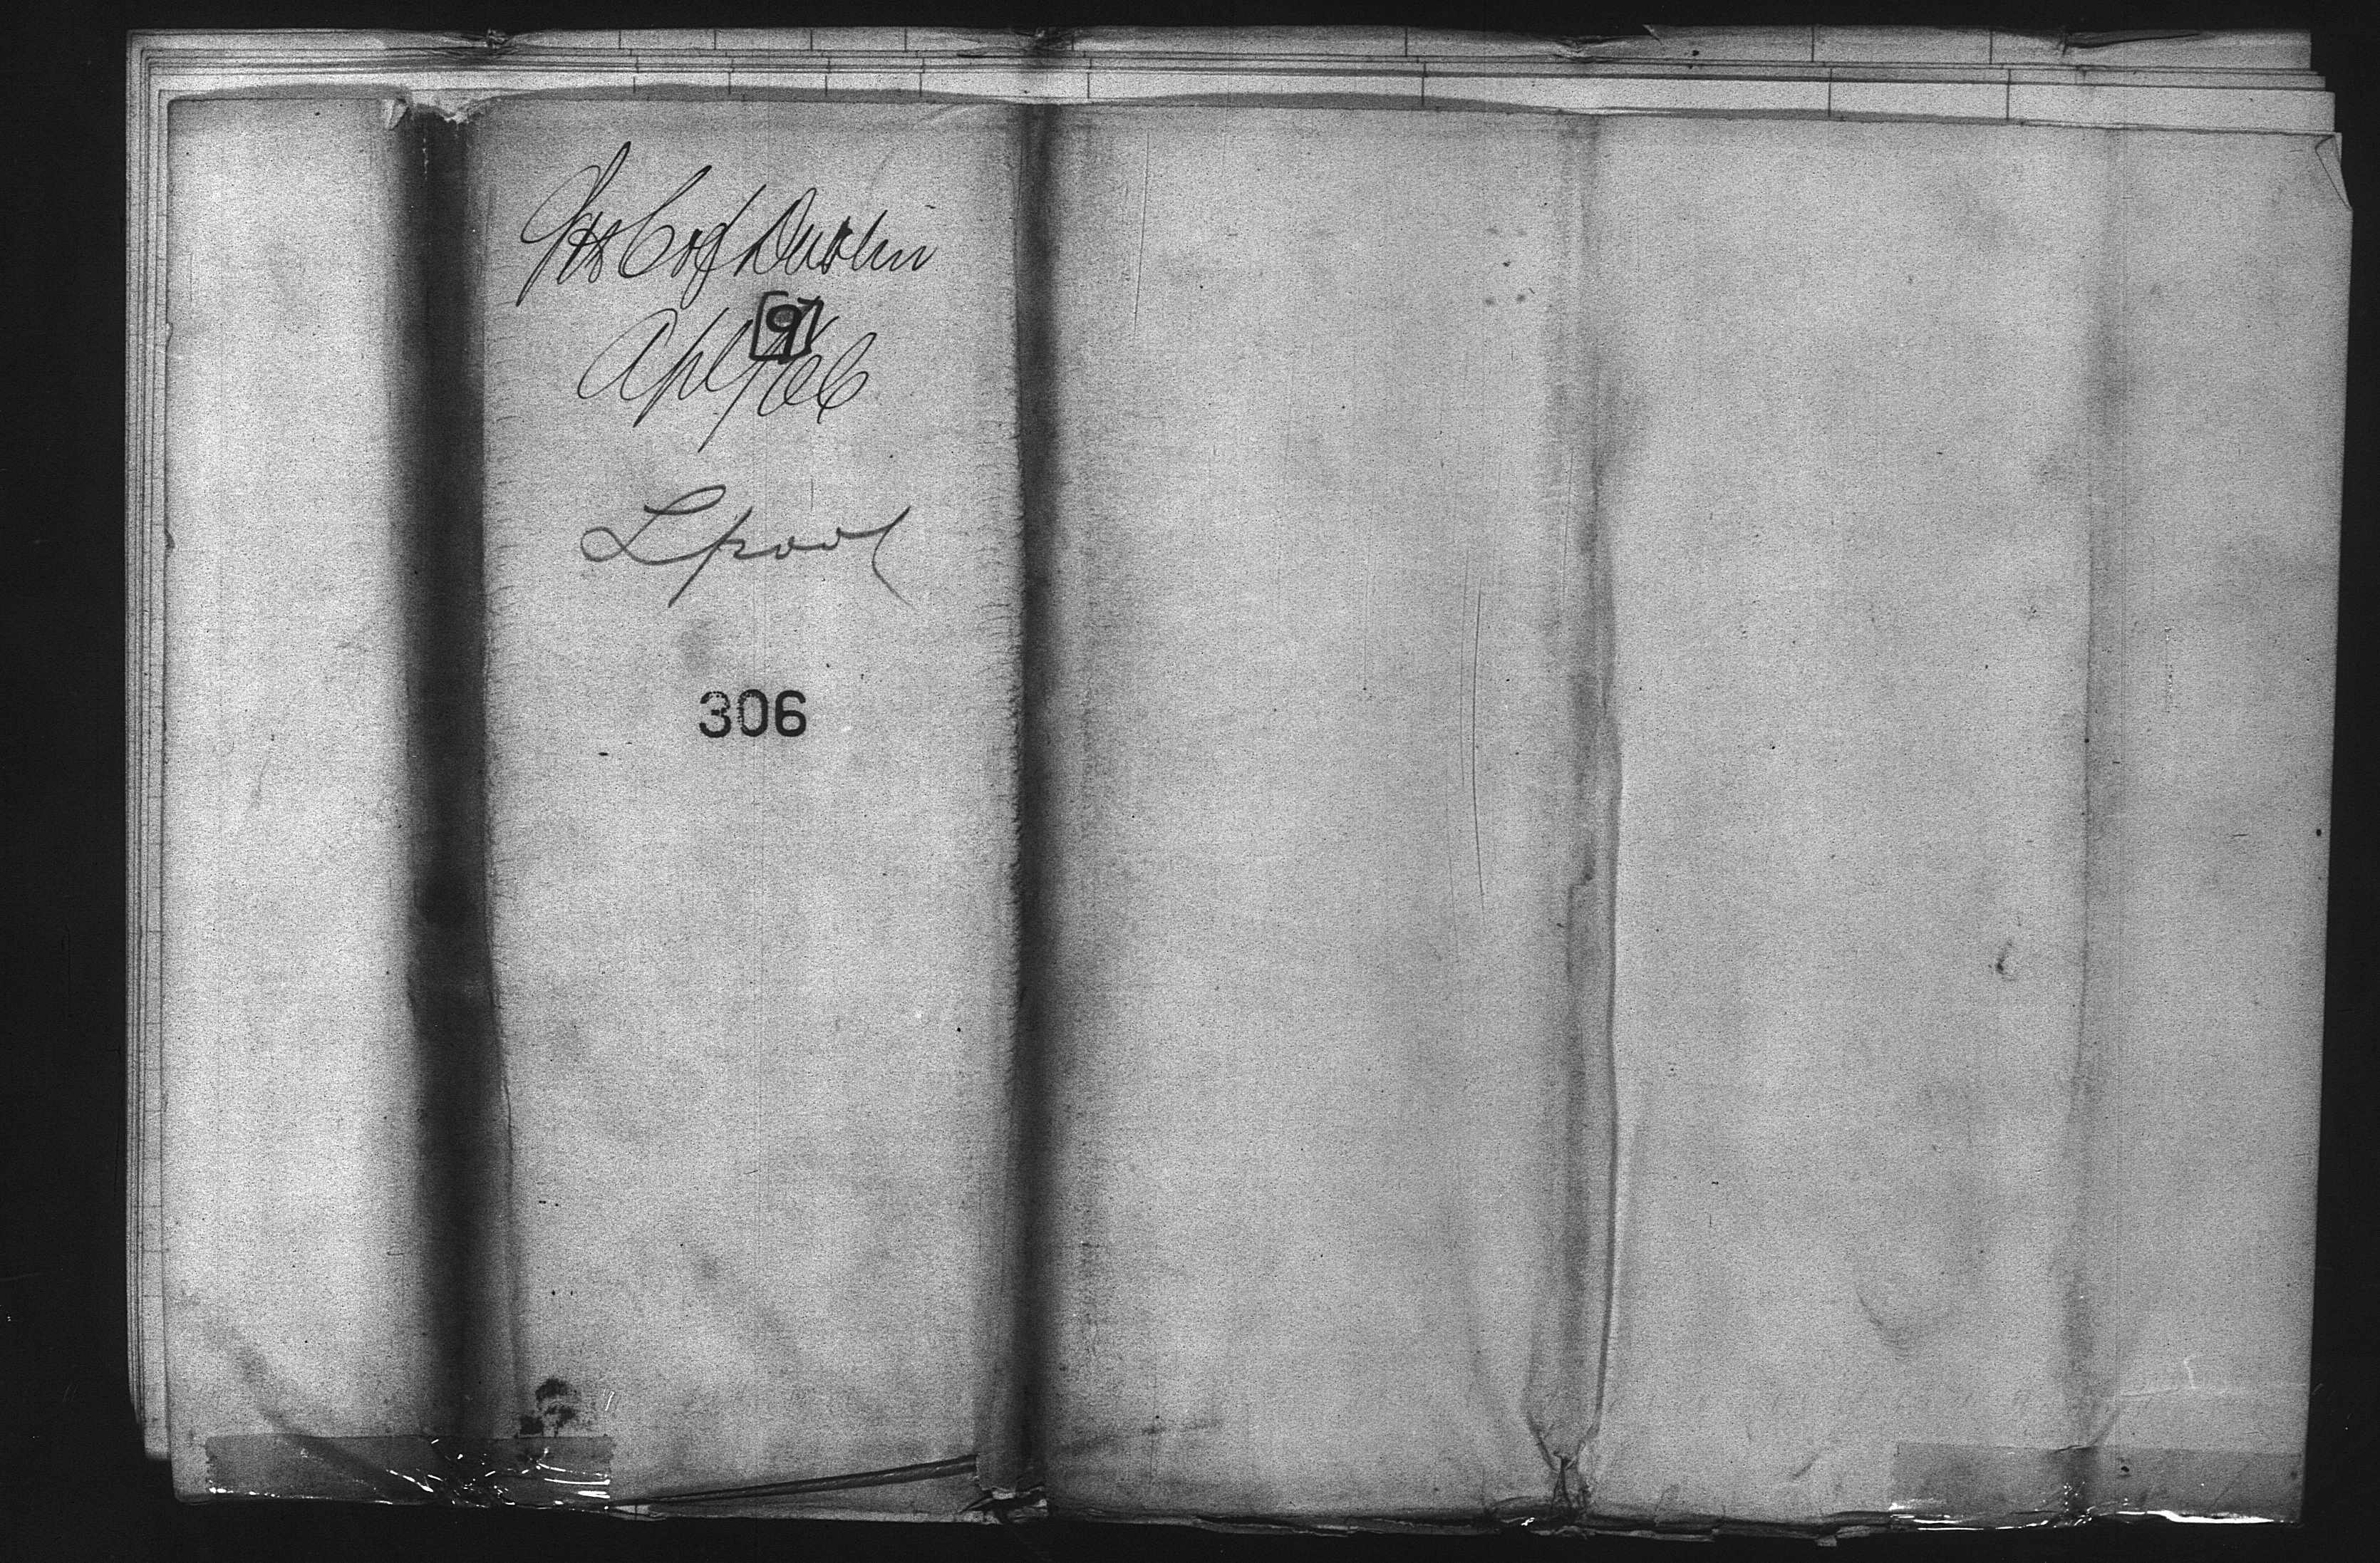 Str C of Dublin
9
Apl 9/66
Lpool
306